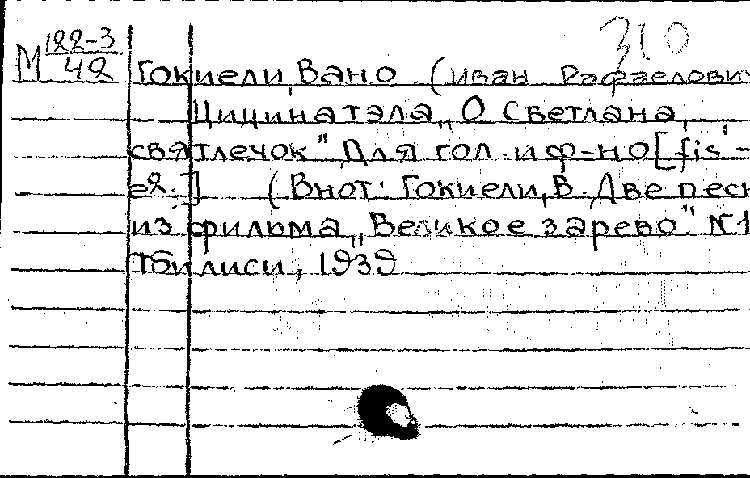 310
М 122-3
42
Гокиели, Вано (Иван Рафаелович
Цицинатэла „О Светлана,
святлечок" Для гол. и ф-но [fis'-
e2.] (В нот: Гокиели, В. Две песн
из фильма „Великое зарево" N1
Тбилиси, 1939